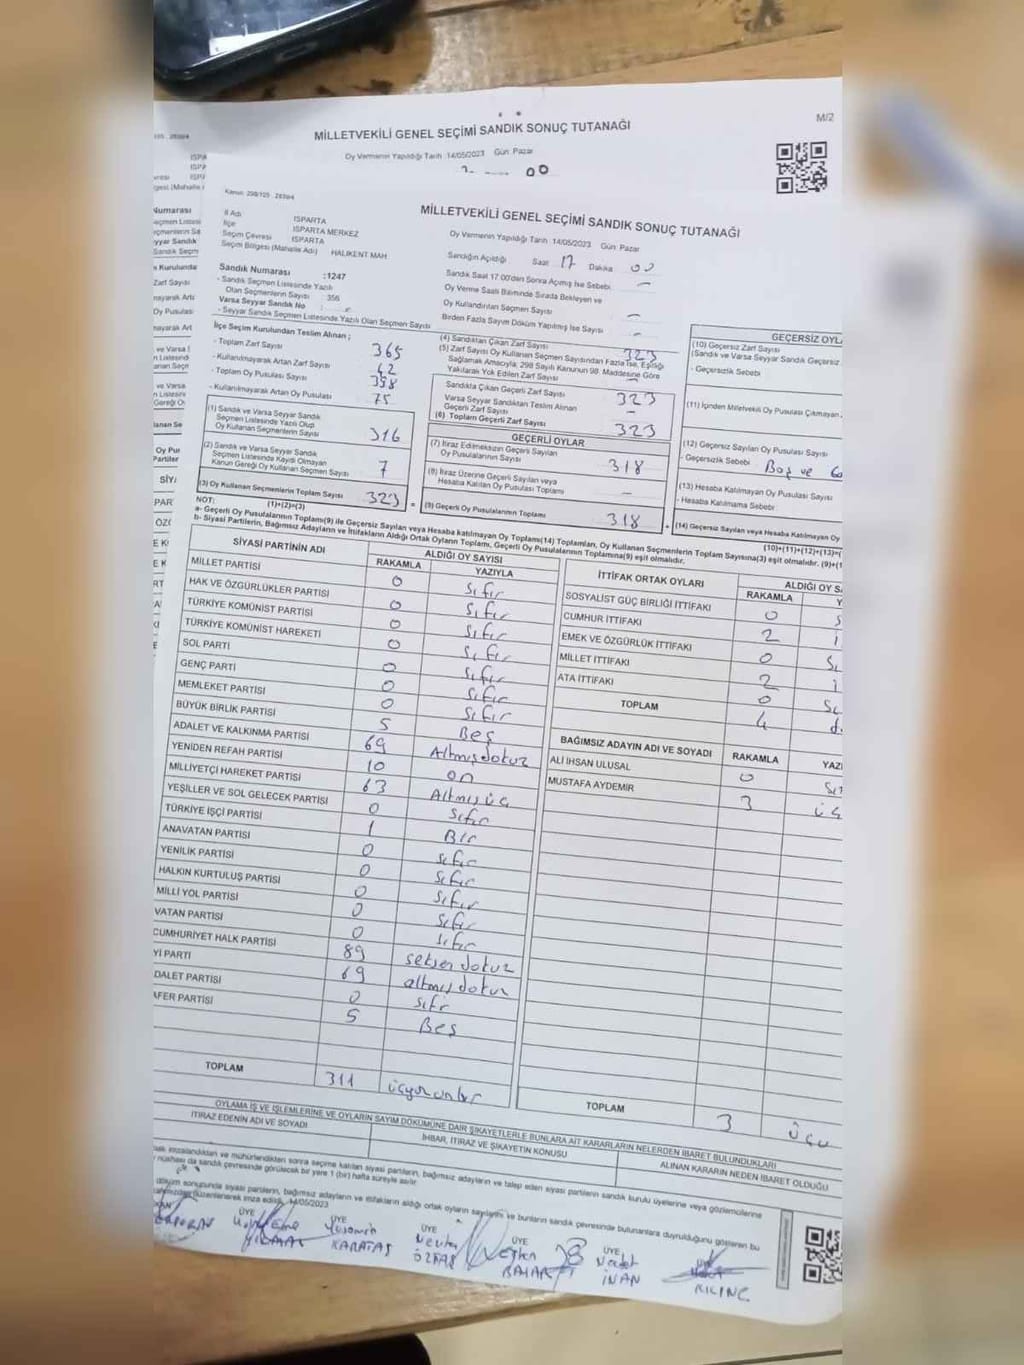 MİLLETVEKİLİ GENEL SEÇİMİ SANDIK SONUÇ TUTANAĞI
M/2
Oy Vermenin Yapıldığı Tarih 14/05/2023 Gün Pazar
Kanun: 298/105 - 2839/4
MİLLETVEKİLİ GENEL SEÇİMİ SANDIK SONUÇ TUTANAĞI
İl Adı ISPARTA
İlçe ISPARTA MERKEZ
Seçim Çevresi ISPARTA
Seçim Bölgesi (Mahalle Adı) HALIKENT MAH
Oy Vermenin Yapıldığı Tarih 14/05/2023 Gün Pazar
Sandığın Açıldığı Saat 17 Dakika 00
Sandık Saat 17.00'den Sonra Açılmış İse Sebebi
Oy Verme Saati Bitiminde Sırada Bekleyen ve
Oy Kullandırılan Seçmen Sayısı
Birden Fazla Sayım Döküm Yapılmış İse Sayısı
Sandık Numarası :1247
- Sandık Seçmen Listesinde Yazılı
Olan Seçmenlerin Sayısı 356
Varsa Seyyar Sandık No
- Seyyar Sandık Seçmen Listesinde Yazılı Olan Seçmen Sayısı
İlçe Seçim Kurulundan Teslim Alınan ;
- Toplam Zarf Sayısı 365
- Kullanılmayarak Artan Zarf Sayısı 42
- Toplam Oy Pusulası Sayısı 398
- Kullanılmayarak Artan Oy Pusulası 75
(1) Sandık ve Varsa Seyyar Sandık
Seçmen Listesinde Yazılı Olup
Oy Kullanan Seçmenlerin Sayısı 316
(2) Sandık ve Varsa Seyyar Sandık
Seçmen Listesinde Kaydı Olmayan
Kanun Gereği Oy Kullanan Seçmen Sayısı 7
(3) Oy Kullanan Seçmenlerin Toplam Sayısı 323
(1)+(2)=(3)
(4) Sandıktan Çıkan Zarf Sayısı 323
(5) Zarf Sayısı Oy Kullanan Seçmen Sayısından Fazla İse, Eşitliği
Sağlamak Amacıyla, 298 Sayılı Kanunun 98. Maddesine Göre
Yakılarak Yok Edilen Zarf Sayısı
Sandıkta Çıkan Geçerli Zarf Sayısı 323
Varsa Seyyar Sandıktan Teslim Alınan
Geçerli Zarf Sayısı
(6) Toplam Geçerli Zarf Sayısı 323
GEÇERLİ OYLAR
(7) İtiraz Edilmeksizin Geçerli Sayılan
Oy Pusulalarının Sayısı 318
(8) İtiraz Üzerine Geçerli Sayılan veya
Hesaba Katılan Oy Pusulası Toplamı
(9) Geçerli Oy Pusulalarının Toplamı 318
GEÇERSİZ OYL
(10) Geçersiz Zarf Sayısı
(Sandık ve Varsa Seyyar Sandık Geçersiz
- Geçersizlik Sebebi
(11) İçinden Milletvekili Oy Pusulası Çıkmayan
(12) Geçersiz Sayılan Oy Pusulası Sayısı
- Geçersizlik Sebebi Boş ve
(13) Hesaba Katılmayan Oy Pusulası Sayısı
- Hesaba Katılmama Sebebi
(14) Geçersiz Sayılan veya Hesaba Katılmayan Oy
(10)+(11)+(12)+(13)=(
NOT:
a- Geçerli Oy Pusulalarının Toplamı(9) ile Geçersiz Sayılan veya Hesaba katılmayan Oy Toplamı(14) Toplamları, Oy Kullanan Seçmenlerin Toplam Sayısına(3) eşit olmalıdır. (9)+(1
b- Siyasi Partilerin, Bağımsız Adayların ve İttifakların Aldığı Ortak Oyların Toplamı, Geçerli Oy Pusulalarının Toplamına(9) eşit olmalıdır.
SİYASİ PARTİNİN ADI ALDIĞI OY SAYISI
RAKAMLA YAZIYLA
MİLLET PARTİSİ 0 Sıfır
HAK VE ÖZGÜRLÜKLER PARTİSİ 0 Sıfır
TÜRKİYE KOMÜNİST PARTİSİ 0 Sıfır
TÜRKİYE KOMÜNİST HAREKETİ 0 Sıfır
SOL PARTİ 0 Sıfır
GENÇ PARTİ 0 Sıfır
MEMLEKET PARTİSİ 0 Sıfır
BÜYÜK BİRLİK PARTİSİ 5 Beş
ADALET VE KALKINMA PARTİSİ 69 Altmışdokuz
YENİDEN REFAH PARTİSİ 10 on
MİLLİYETÇİ HAREKET PARTİSİ 63 Altmışüç
YEŞİLLER VE SOL GELECEK PARTİSİ 0 Sıfır
TÜRKİYE İŞÇİ PARTİSİ 1 Bir
ANAVATAN PARTİSİ 0 Sıfır
YENİLİK PARTİSİ 0 Sıfır
HALKIN KURTULUŞ PARTİSİ 0 Sıfır
MİLLİ YOL PARTİSİ 0 Sıfır
VATAN PARTİSİ 0 Sıfır
CUMHURİYET HALK PARTİSİ 89 seksen dokuz
Yİ PARTİ 69 altmış dokuz
DALET PARTİSİ 0 Sıfır
AFER PARTİSİ 5 Beş
TOPLAM 311 üçyüzonbir
İTTİFAK ORTAK OYLARI ALDIĞI OY S
RAKAMLA Y
SOSYALİST GÜÇ BİRLİĞİ İTTİFAKI 0 S
CUMHUR İTTİFAKI 2 i
EMEK VE ÖZGÜRLÜK İTTİFAKI 0 Sı
MİLLET İTTİFAKI 2 i
ATA İTTİFAKI 0 Sı
TOPLAM 4 d
BAĞIMSIZ ADAYIN ADI VE SOYADI RAKAMLA YAZI
ALİ İHSAN ULUSAL 0 Sı
MUSTAFA AYDEMİR 3 üç
TOPLAM 3 üç
OYLAMA İŞ VE İŞLEMLERİNE VE OYLARIN SAYIM DÖKÜMÜNE DAİR ŞİKAYETLERLE BUNLARA AİT KARARLARIN NELERDEN İBARET BULUNDUKLARI
İTİRAZ EDENİN ADI VE SOYADI
İHBAR, İTİRAZ VE ŞİKAYETİN KONUSU
ALINAN KARARIN NEDEN İBARET OLDUĞU
imzalandıktan ve mühürlendikten sonra seçime katılan siyasi partilerin, bağımsız adayların ve talep eden siyasi partilerin sandık kurulu üyelerine veya gözlemcilerine
nüshası da sandık çevresinde görülecek bir yere 1 (bir) hafta süreyle asılır.
döküm sonucunda siyasi partilerin, bağımsız adayların ve ittifakların aldığı ortak oyların sayılarını ve bunların sandık çevresinde bulunanlara duyrulduğunu gösteren bu
düzenlenerek imza edildi. 14/05/2023
ÜYE ÜYE ÜYE ÜYE ÜYE
Yasemin KARATAŞ
ÖZTAŞ
Nedet İNAN
KILINÇ